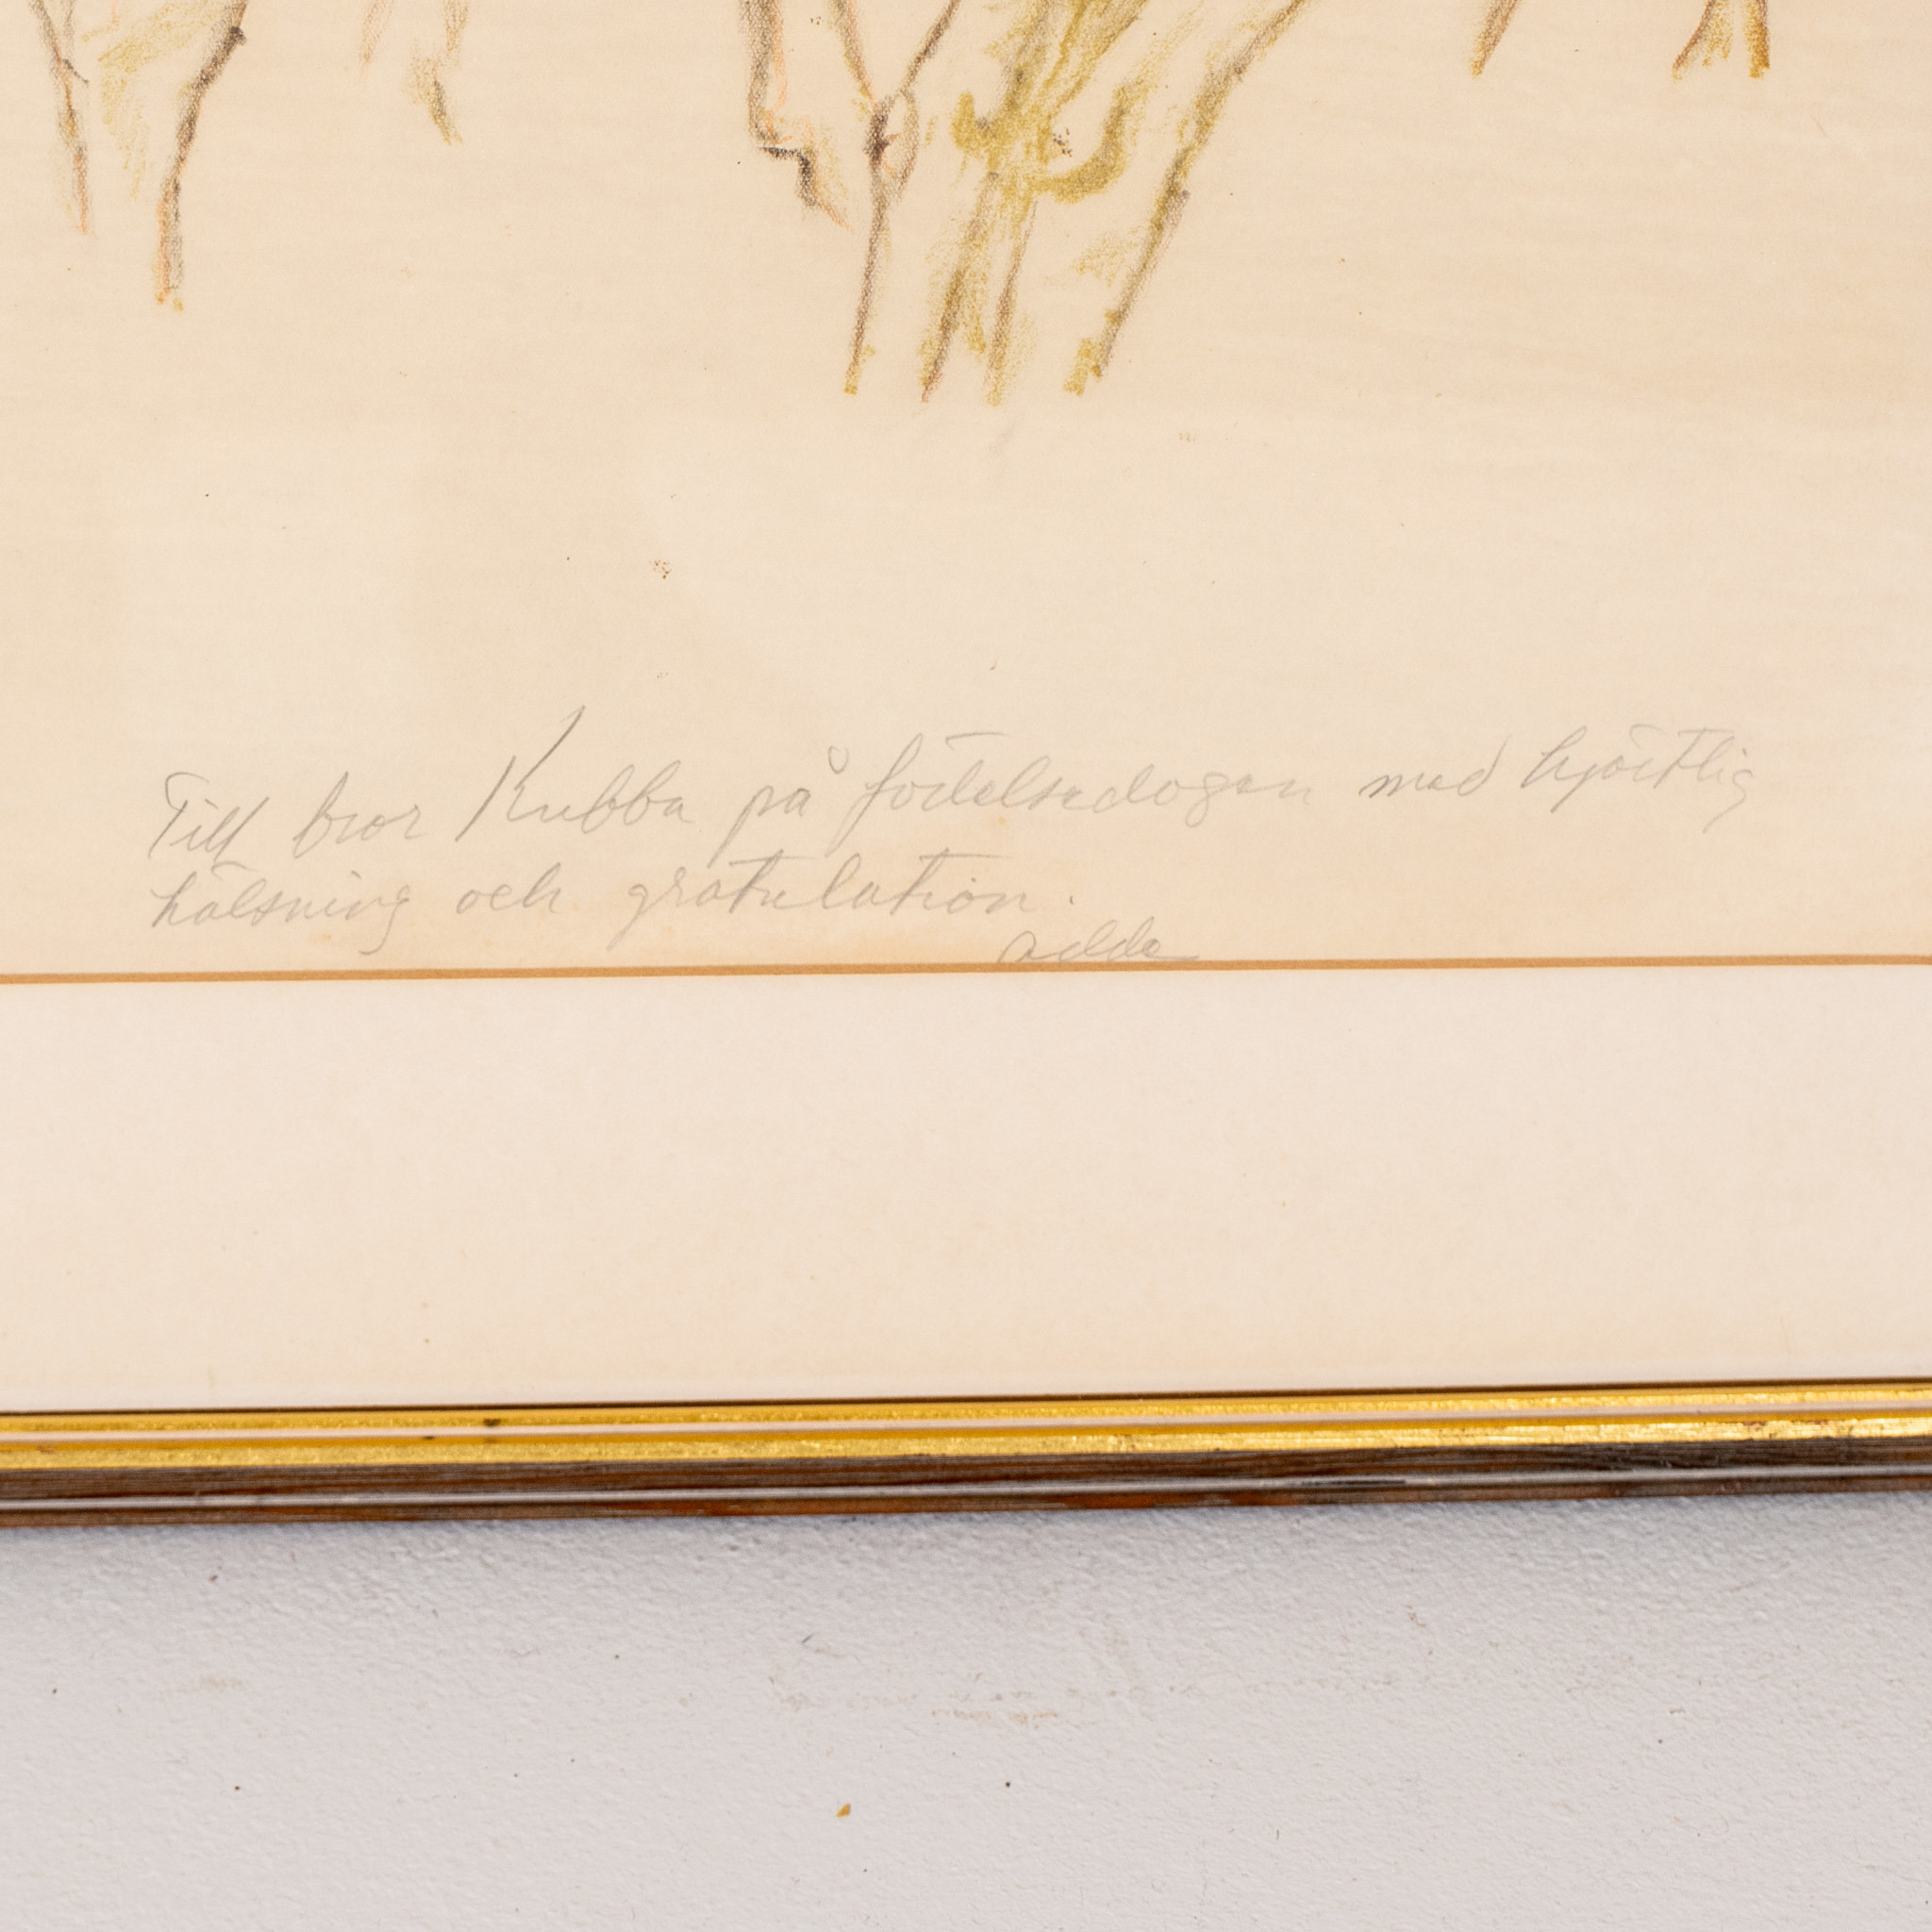 Till bror Kubba på födelsedagen med hjärtlig
hälsning och gratulation.
Adde